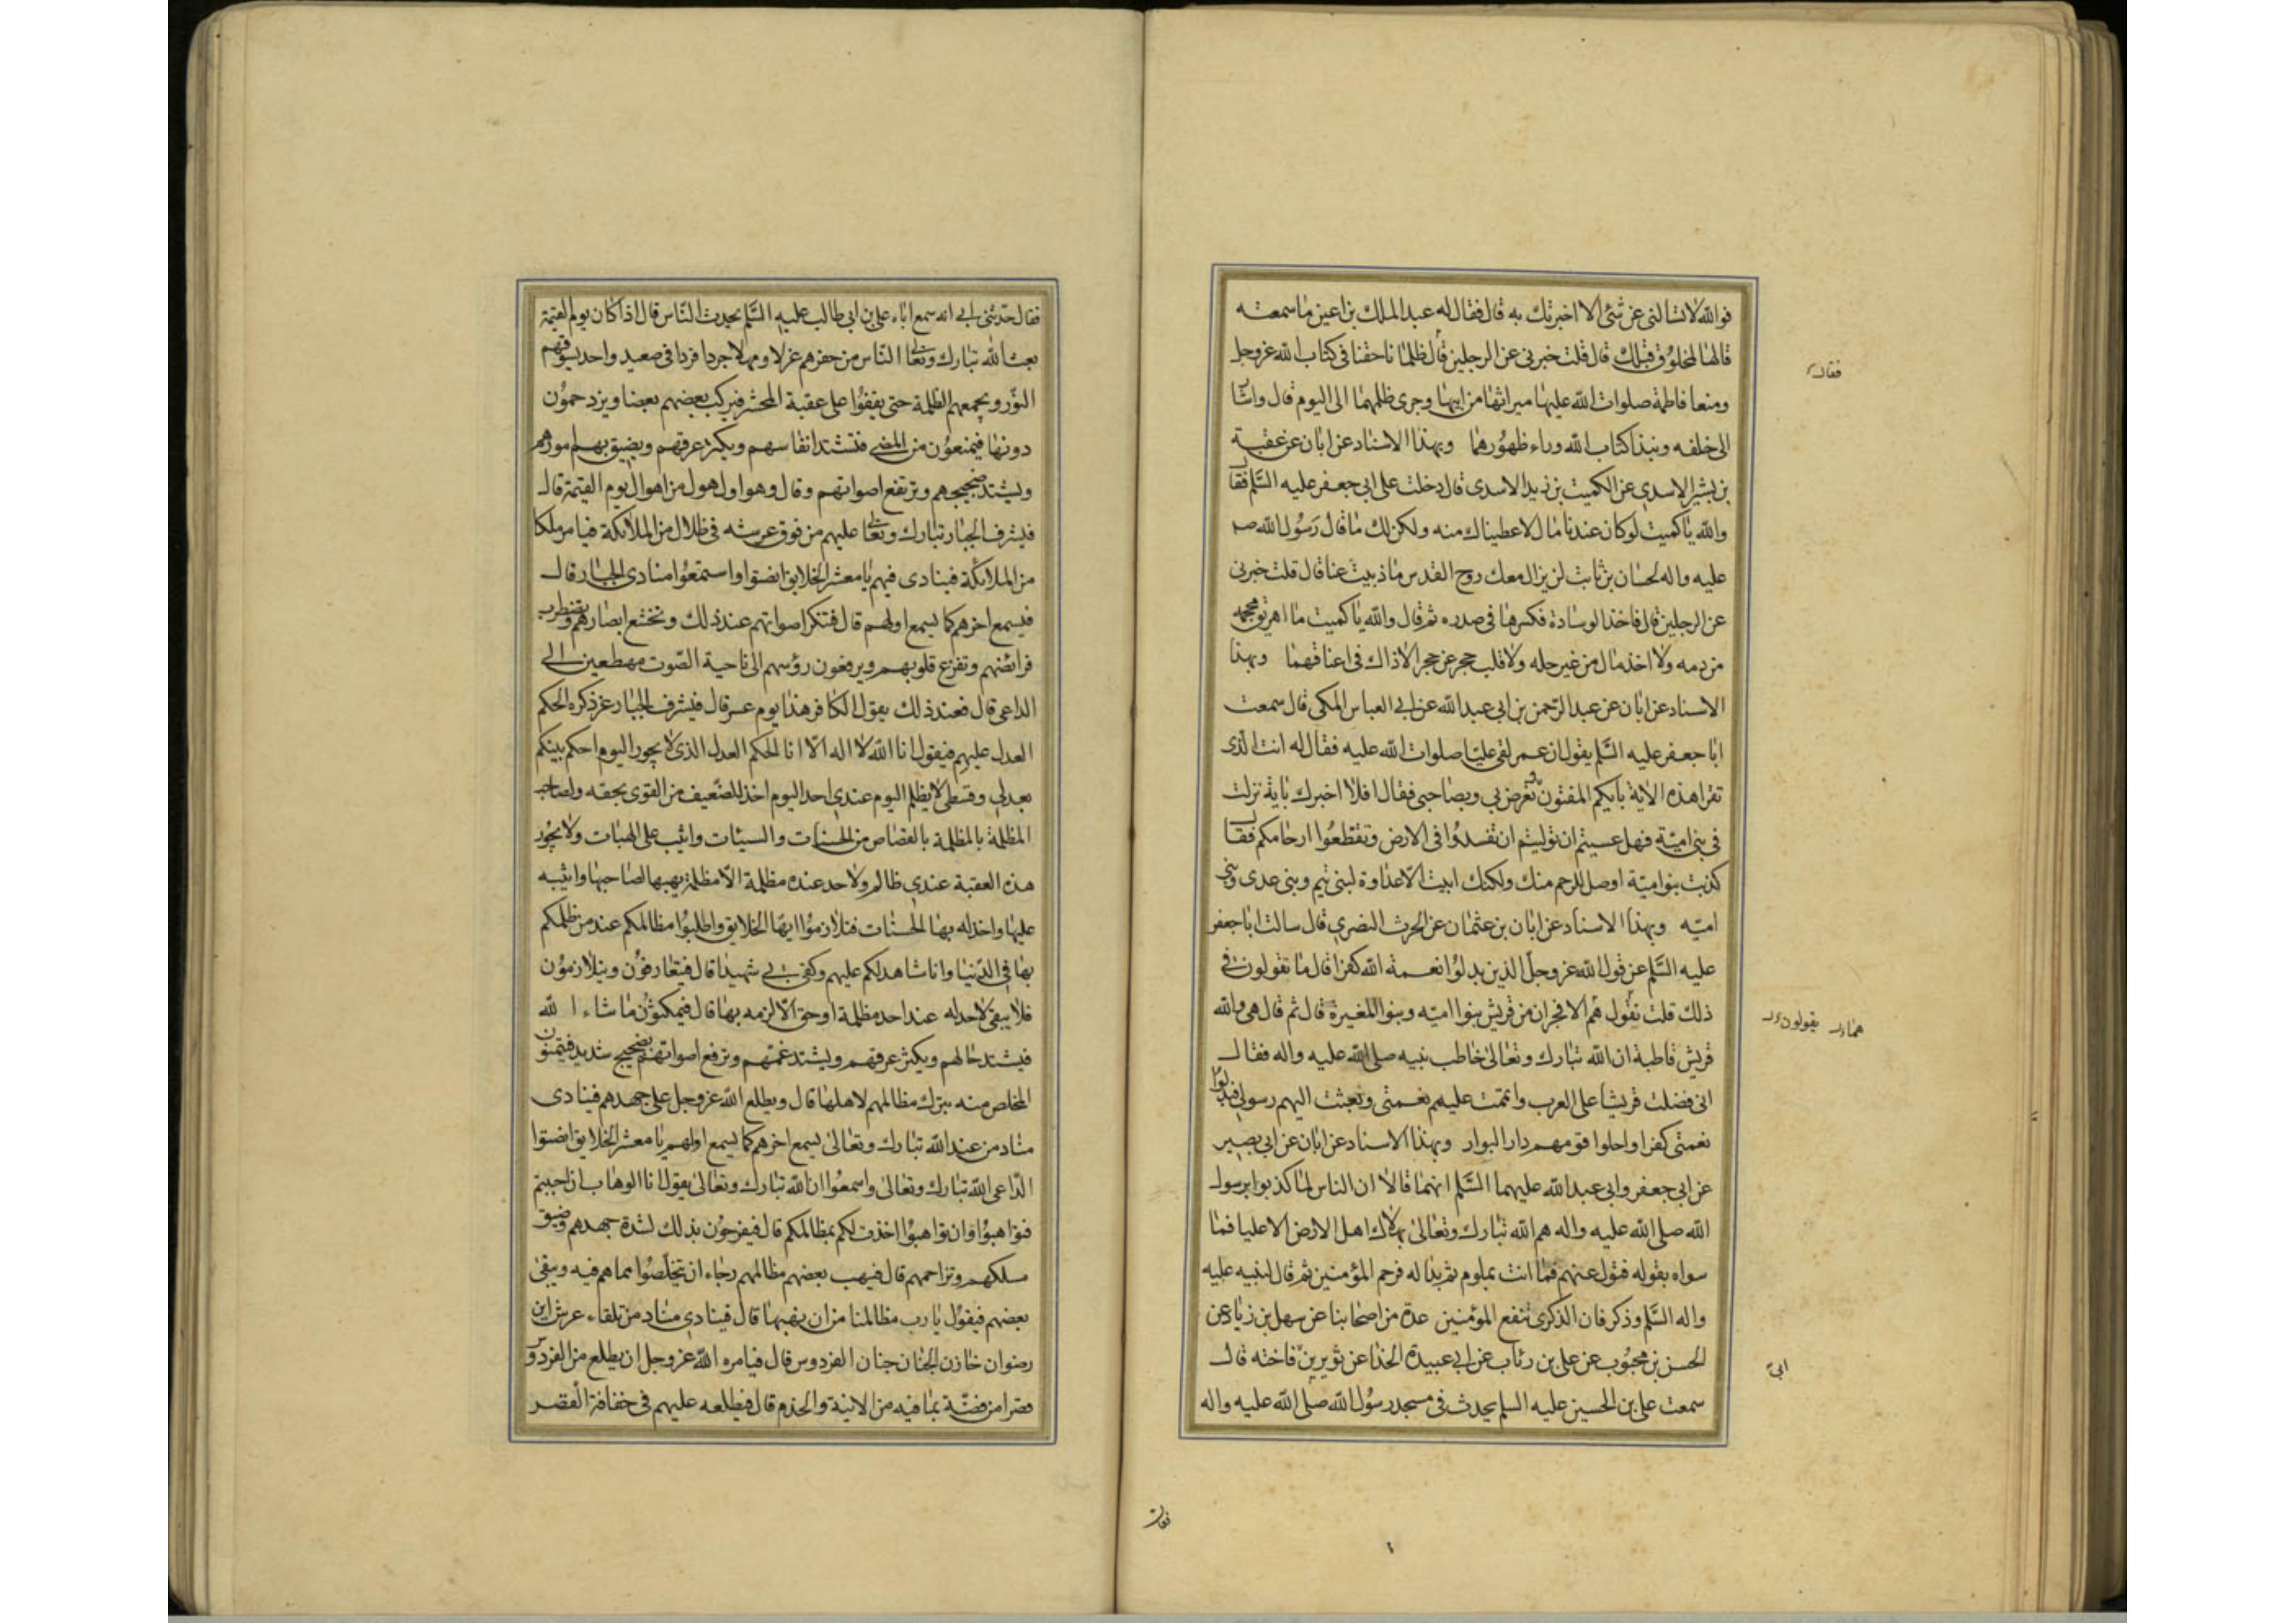 فوالله لا تسالني عن شئ الا اخبرتك به قال فقال له عبد الملك بن اعين ما سمعته
قالها لمخلوق قبلك قال قلت خبرني عن الرجلين قال ظلمانا حقنا في كتاب الله عز وجل
ومنعا فاطمة صلوات الله عليها ميراثها من ابيها وجرى ظلمهما الى اليوم قال واشار
الى خلفه ونبذا كتاب الله وراء ظهورهما وبهذا الاسناد عن ابان عن عقبة
بن بشير الاسدي عن الكميت بن زيد الاسدى قال دخلت على ابي جعفر عليه السلم فقال
والله يا كميت لو كان عندنا مال لاعطيناك منه ولكن لك ما قال رسول الله صلى
عليه واله لحسان بن ثابت لن يزال معك روح القدس ما ذببت عنا قال قلت خبرني
عن الرجلين قال فاخذ الوسادة فكسرها في صدره ثم قال والله يا كميت ما اهريق محجمة
من دمه ولا اخذ مال من غير حله ولا قلب حجر عن حجر الا ذاك في اعناقهما وبهذا
الاسناد عن ابان عن عبد الرحمن بن ابي عبد الله عن ابي العباس المكي قال سمعت
ابا جعفر عليه السلم يقول ان عمر لقى عليا صلوات الله عليه فقال له انت الذى
تقرا هذه الاية بايكم المفتون تعرض بي وبصاحبي فقال افلا اخبرك باية نزلت
في بني امية فهل عسيتم ان توليتم ان تفسدوا في الارض وتقطعوا ارحامكم فقال
كذبت بنو امية اوصل للرحم منك ولكنك ابيت الا عداوة لبني تيم وبني عدى وبني
امية وبهذا الاسناد عن ابان بن عثمان عن الحرث النصري قال سالت ابا جعفر
عليه السلم عن قول الله عز وجل الذين بدلوا نعمة الله كفرا قال ما تقولون في
ذلك قلت نقول هم الافجران من قريش بنوا امية وبنو المغيرة قال ثم قال هي والله
قريش قاطبة ان الله تبارك وتعالى خاطب نبيه صلى الله عليه واله فقال
اني فضلت قريشا على العرب واتممت عليهم نعمتي وبعثت اليهم رسولي فبدلوا
نعمتي كفرا واحلوا قومهم دار البوار وبهذا الاسناد عن ابان عن ابي بصير
عن ابي جعفر وابي عبد الله عليهما السلم انهما قالا ان الناس لما كذبوا برسول
الله صلى الله عليه واله هم الله تبارك وتعالى بهلاك اهل الارض الا عليا فما
سواه بقوله فتول عنهم فما انت بملوم ثم بدا له فرحم المؤمنين ثم قال لنبيه عليه
واله السلم وذكر فان الذكرى تنفع المؤمنين عدة من اصحابنا عن سهل بن زياد عن
الحسن بن محبوب عن علي بن رئاب عن ابي عبيدة الحذا عن ثوير بن فاخته قال
سمعت علي بن الحسين عليه السلم يحدث في مسجد رسول الله صلى الله عليه واله
فقال
يقولون
ابي
فقال
فقال حدثني ابي انه سمع اباه علي بن ابي طالب عليه السلم يحدث الناس قال اذا كان يوم القيمة
بعث الله تبارك وتعالى الناس من حفرهم غرلا ومهلا جردا فردا في صعيد واحد يسوقهم
النور ويجمعهم الظلمة حتى يقفوا على عقبة المحشر فيركب بعضهم بعضا ويزدحمون
دونها فيمنعون من المضي فتشتد انفاسهم ويكثر عرقهم ويضيق بهم امورهم
ويشتد ضجيجهم وترتفع اصواتهم وقال وهو اول هول من اهوال يوم القيمة قال
فيشرف الجبار تبارك وتعالى عليهم من فوق عرشه في ظلال من الملائكة فيامر ملكا
من الملائكة فينادى فيهم يا معشر الخلايق انصتوا واستمعوا منادى الجبار قال
فيسمع اخرهم كما يسمع اولهم قال فتنكسر اصواتهم عند ذلك وتخشع ابصارهم وتضطرب
فرائصهم وتفزع قلوبهم ويرفعون رؤسهم الى ناحية الصوت مهطعين الى
الداعي قال فعند ذلك يقول الكافر هذا يوم عسر قال فيشرف الجبار عز ذكره الحكم
العدل عليهم فيقول انا الله لا اله الا انا الحكم العدل الذى لا يجور اليوم احكم بينكم
بعدلي وقسطى لا يظلم اليوم عندي احد اليوم اخذ للضعيف من القوى بحقه ولصاحب
المظلمة بالمظلمة بالقصاص من الحسنات والسيئات واثيب على الهبات ولا يجوز
هذه العقبة عندي ظالم ولا حد عنده مظلمة الا مظلمة يهبها لصاحبها واثيبه
عليها واخذ له بها الحسنات فتلازموا ايها الخلايق واطلبوا مظالمكم عند من ظلمكم
بها في الدنيا وانا شاهد لكم عليهم وكفى بي شهيدا قال فيتعارفون ويتلازمون
فلا يبقى لاحد له عند احد مظلمة او حق الا لزمه بها قال فيمكثون ما شاء الله
فيشتد حالهم ويكثر عرقهم ويشتد غمهم وترفع اصواتهم بضجيج شديد فيتمنون
المخلص منه بترك مظالمهم لاهلها قال ويطلع الله عز وجل على جهدهم فينادى
مناد من عند الله تبارك وتعالى يسمع اخرهم كما يسمع اولهم يا معشر الخلايق انصتوا
الداعي الله تبارك وتعالى واسمعوا ان الله تبارك وتعالى يقول انا الوهاب ان احببتم
تواهبوا وان تواهبوا اخذت لكم بمظالمكم قال فيفرحون بذلك لشدة جهدهم وضيق
مسلكهم وتزاحمهم قال فيهب بعضهم مظالمهم رجاء ان يتخلصوا مما هم فيه ويبقى
بعضهم فيقول يا رب مظالمنا من ان نهبها قال فينادي مناد من تلقاء عرش اين
رضوان خازن الجنان جنان الفردوس قال فيامره الله عز وجل ان يطلع من الفردوس
قصرا من فضة بما فيه من الانية والخدم قال فيطلعه عليهم في حفافة القصر